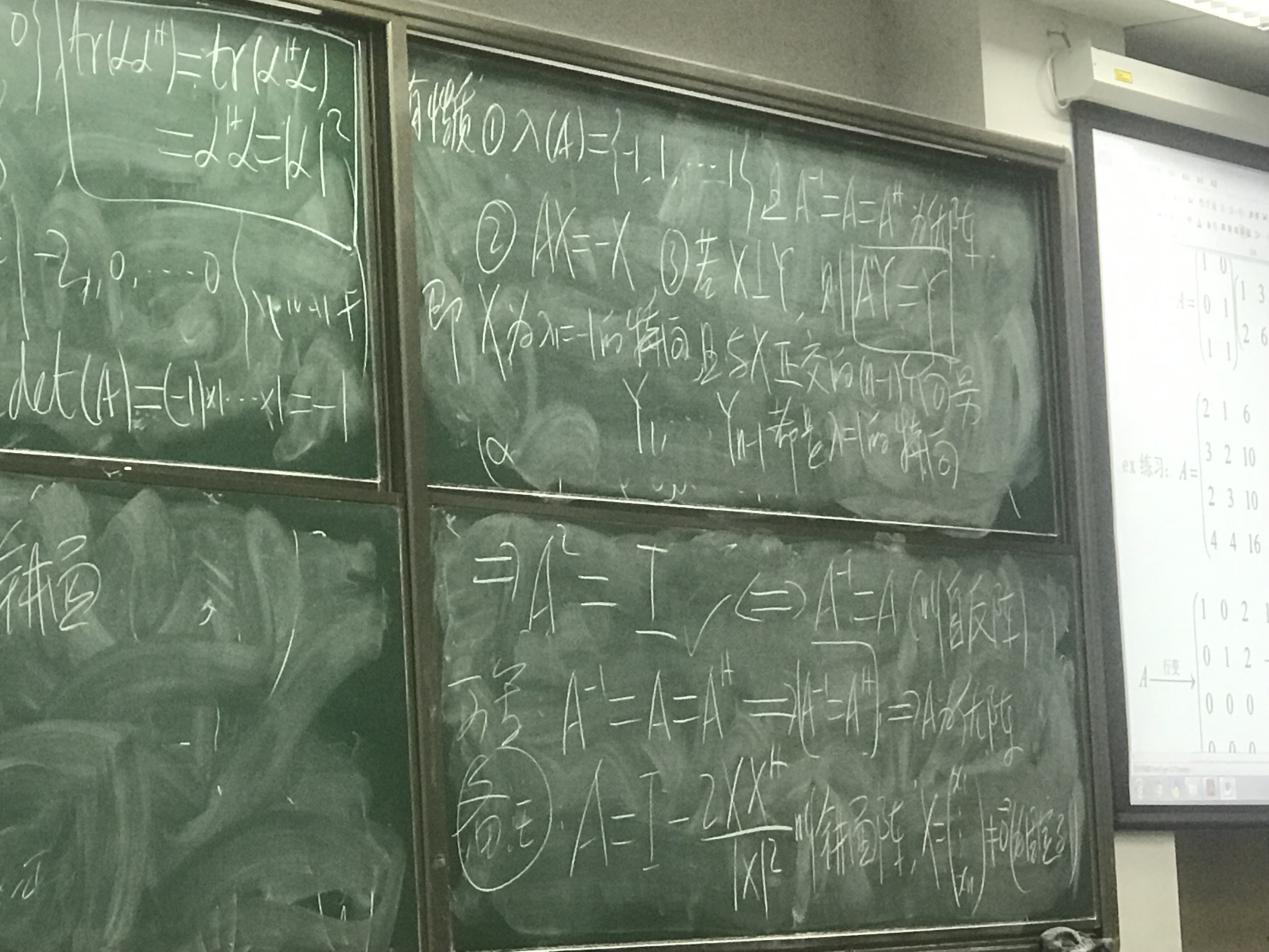 tr(αα^H)=tr(α^Hα)
=α^Hα=|α|²
-2, 0, ⋯ 0
det(A)=(-1)×1⋯×1=-1
镜面
有性质 ① λ(A)={-1, 1, ⋯ 1} 且 A⁻¹=A=A^H 为优阵.
② AX=-X ③ 若 X⊥Y, 则 AY=Y
即 X 为 λ=-1 的特向 且与X正交的(n-1)个向量
Y₁, ⋯ Yₙ₋₁ 都是 λ=1 的特向
⇒ A² = I ✓ ⇔ A⁻¹=A (叫自反阵)
可知 A⁻¹=A=A^H ⇒ A⁻¹=A^H, ⇒A为优阵
备注. A=I-2XX^H/|X|² 叫镜面阵, X=(x₁ ⋮ xₙ)≠0
A= 1 0 1 3
0 1 2 6
1 1
ex 练习: A= 2 1 6
3 2 10
2 3 10
4 4 16
A 行变→ 1 0 2 1
0 1 2 -
0 0 0
0 0 0